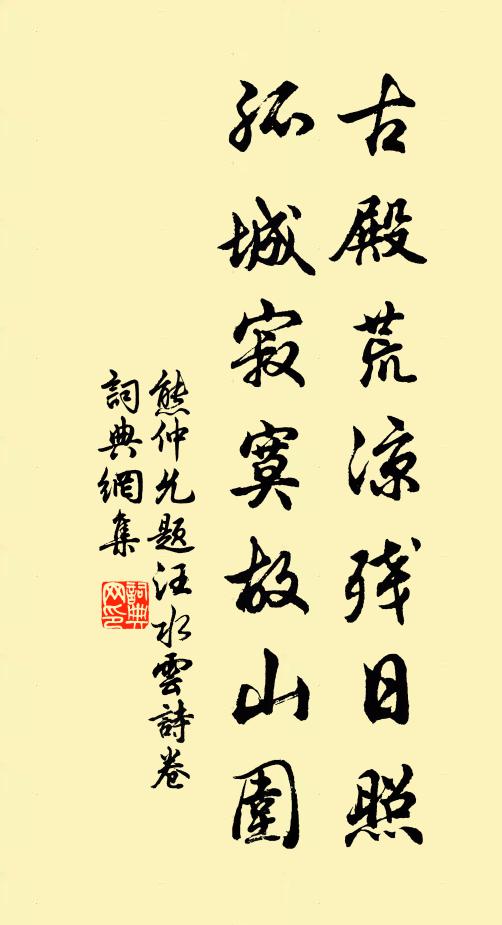 古殿荒涼残日照
孤城寂寞故山圍
熊仲允題汪水雲詩卷
詞典網集
詞典网印